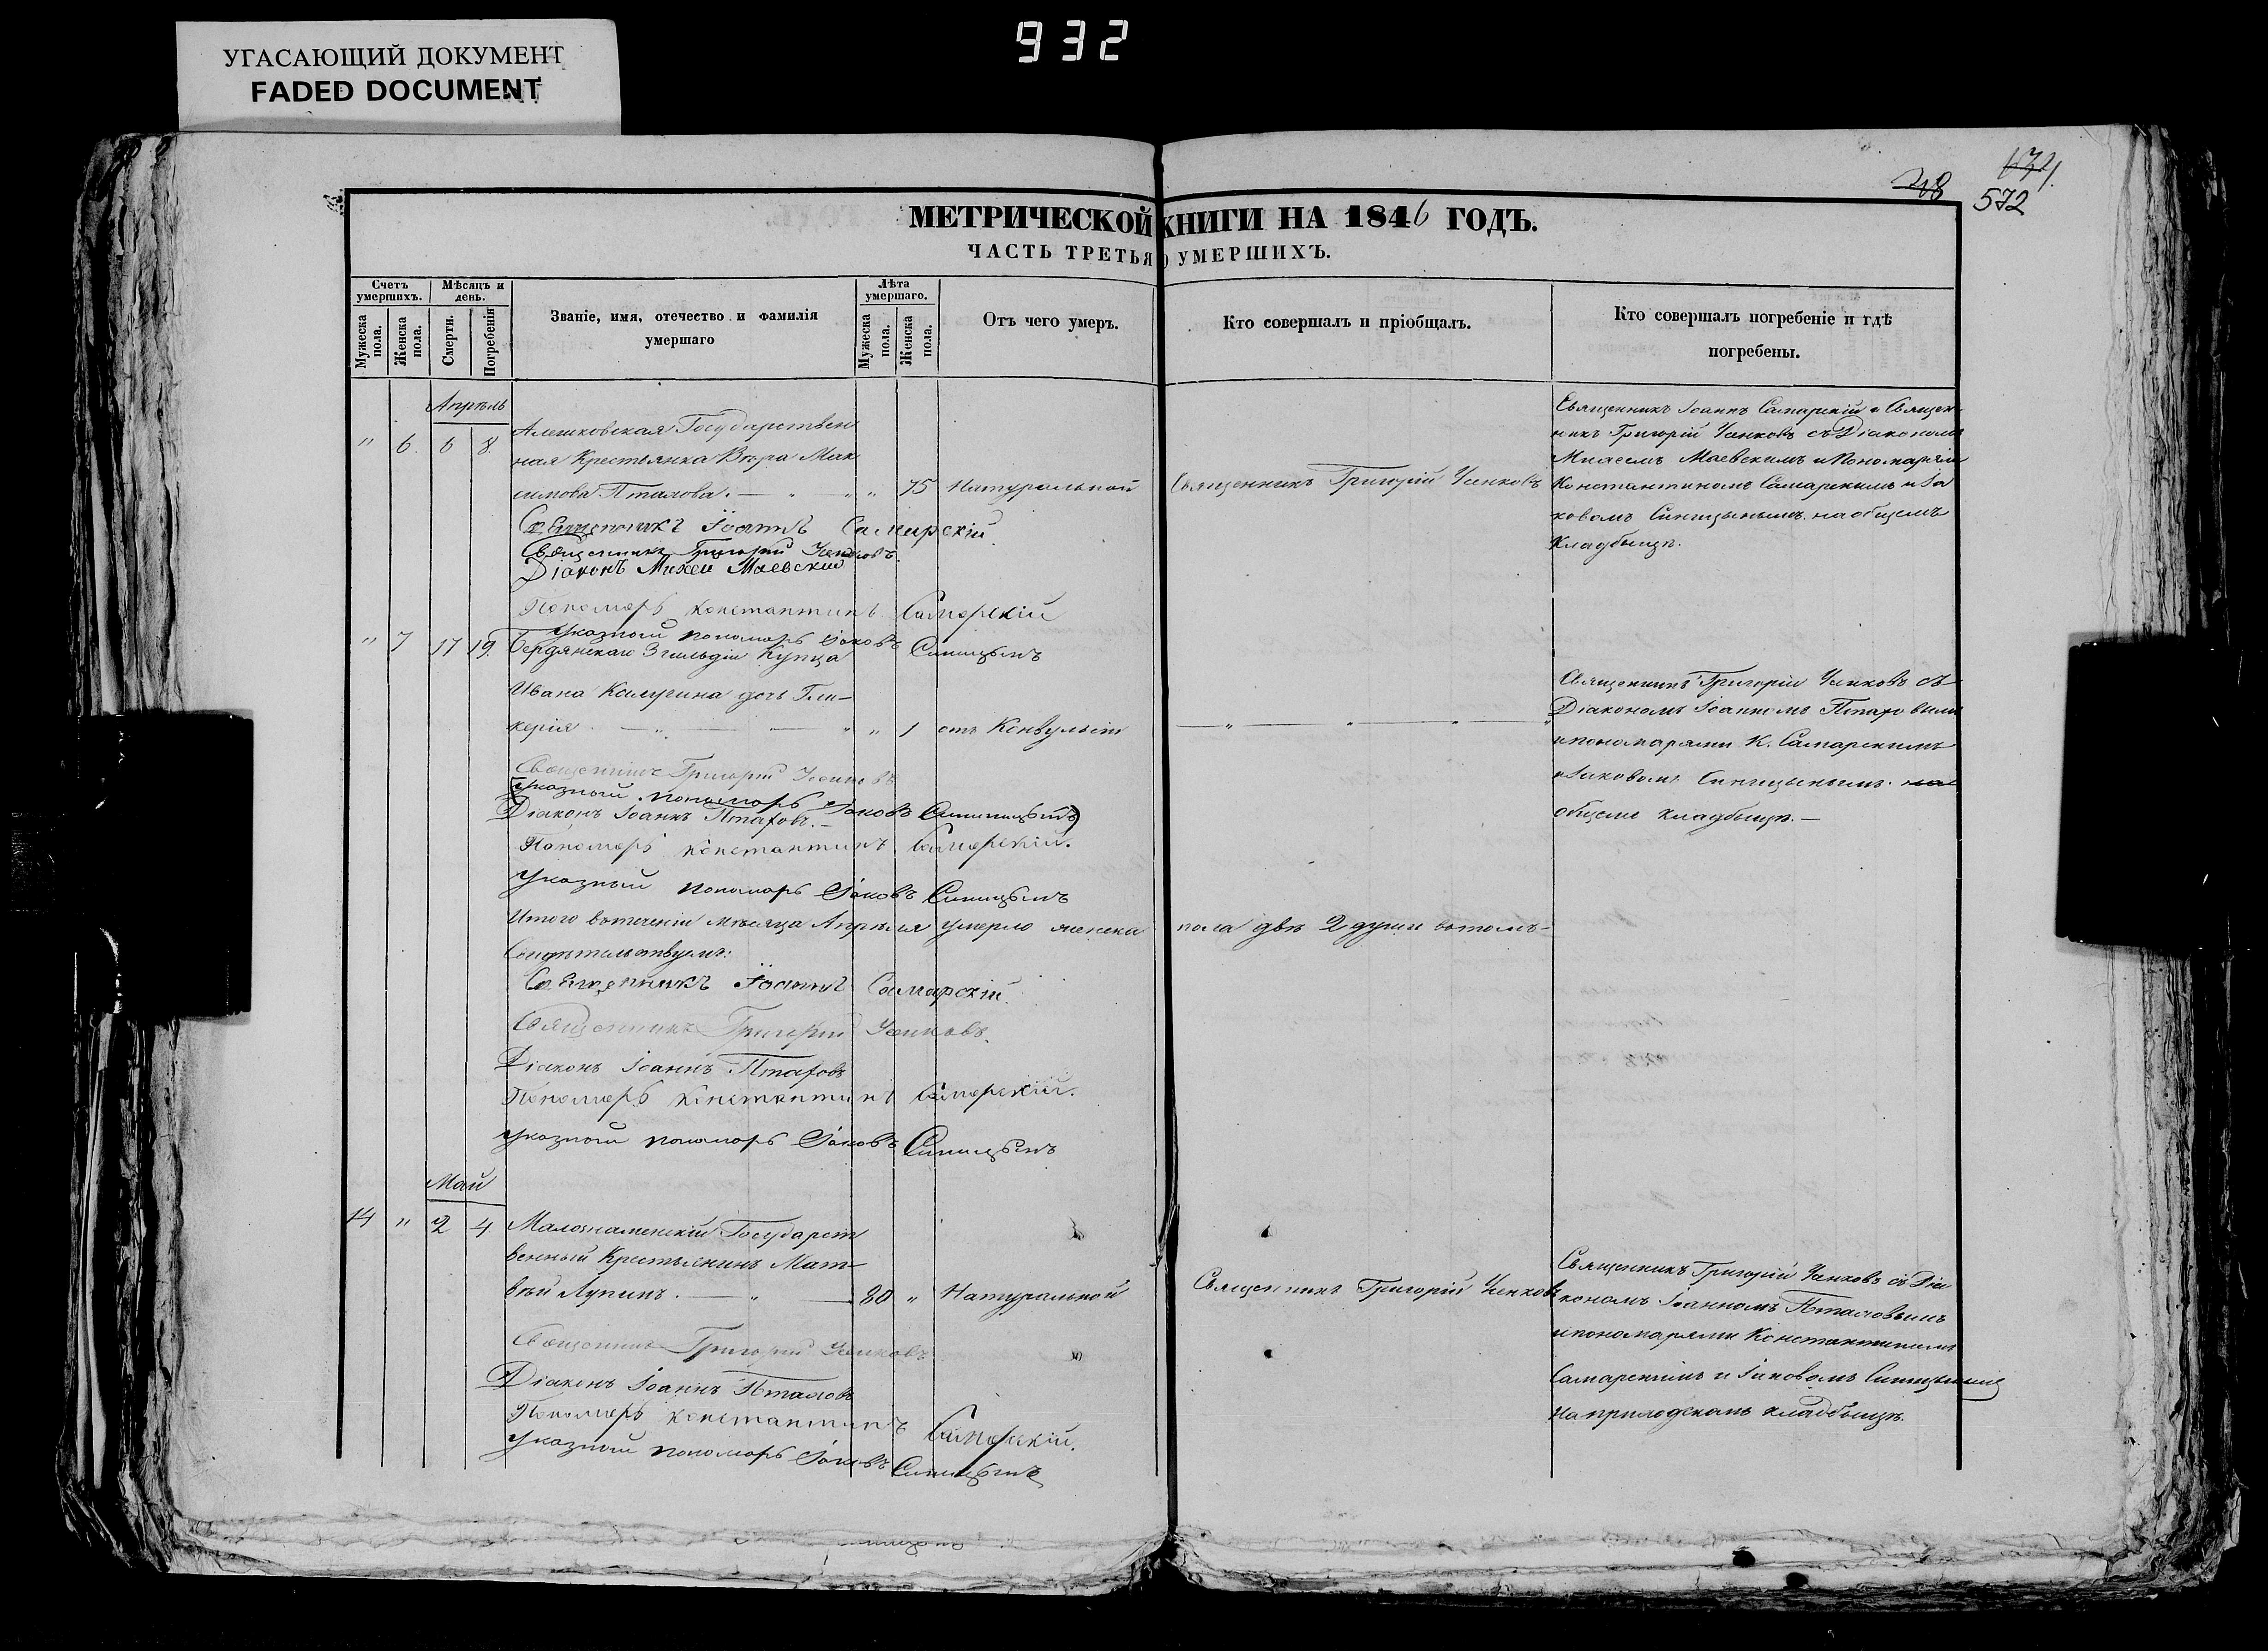 932
УГАСАЮЩИЙ ДОКУМЕНТ
FADED DOCUMENT
174.
28
572
МЕТРИЧЕСКОЙ КНИГИ НА 1846 ГОДЪ.
ЧАСТЬ ТРЕТЬЯ О УМЕРШИХЪ.
Счетъ умершихъ.
Мужеска пола.
Женска пола.
Мѣсяцъ и день.
Смерти.
Погребенія
Званіе, имя, отечество и фамилія умершаго
Лѣта умершаго.
Мужеска пола.
Женска пола.
Отъ чего умеръ.
Кто совершалъ и пріобщалъ.
Кто совершалъ погребеніе и гдѣ погребены.
Апрѣль
" 6. 6 8.
Алешковская Государствен
ная Крестьянка Вѣра Мак
симова Пталова. — " — " " 75 Натуральной
Священникъ Григорій Ченковъ
Священникъ Іоаннъ Самарскій и Священ-
никъ Григорій Ченковъ съ Діакономъ
Михеемъ Маевскимъ и Пономарями
Константиномъ Самарскимъ и Іа
ковомъ Синицынымъ на общемъ
Кладбищѣ.
Священникъ Іоаннъ Самарскій.
Священникъ Григорій Ченковъ.
Діаконъ Михей Маевскій
Пономарь Константинъ Самарскій
Указный пономарь Іаковъ Синицынъ
" 7 17 19.
Бердянскаго 3 гильдіи Купца
Ивана Калугина дочь Гли-
керія. — " — — " " 1 отъ Конвульсіи
— " — " — " — "
Священникъ Григорій Ченковъ съ
Діакономъ Іоанномъ Пталовымъ
и пономарями К. Самарскимъ
и Іаковомъ Синицынымъ на
общемъ кладбищѣ. —
Священникъ Григорій Ченковъ
Указный пономарь Іаковъ Синицынъ)
Діаконъ Іоаннъ Пталовъ. —
Пономарь Константинъ Самарскій.
Указный пономарь Іаковъ Синицынъ
Итого втеченіи мѣсяца Апрѣля умерло женска пола двѣ 2 души вотомъ-
Свидѣтельствуемъ:
Священникъ Іоаннъ Самарскій.
Священникъ Григорій Ченковъ.
Діаконъ Іоаннъ Пталовъ
Пономарь Константинъ Самарскій.
Указный пономарь Іаковъ Синицынъ
Май
14 " 2 4
Малознаменскій Государст
венный Крестьянинъ Мат-
вѣй Лупинъ. — " — 80 " Натуральной
Священникъ Григорій Ченковъ
Священникъ Григорій Ченковъ съ Діа
кономъ Іоанномъ Пталовымъ
и пономарями Константиномъ
Самарскимъ и Іаковомъ Синицынымъ
На приходскомъ кладбищѣ.
Священникъ Григорій Ченковъ
Діаконъ Іоаннъ Пталовъ
Пономарь Константинъ Самарскій.
Указный пономарь Іаковъ Синицынъ